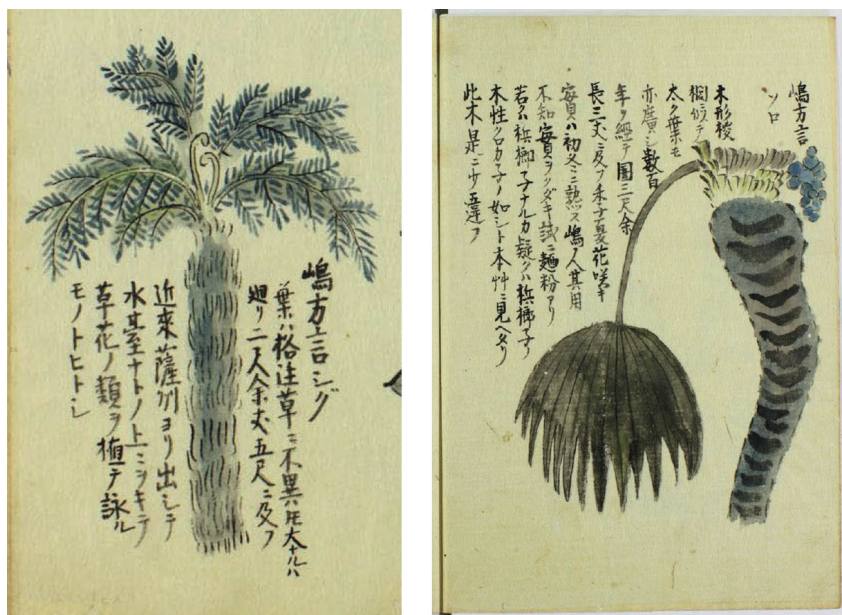 嶋方言シグ
葉ハ格注草ニ不異凡大ナルハ
廻リ二尺余丈五尺ニ及フ
近來薩州ヨリ出シテ
水其臺ナトノ上ニシキテ
草花ノ類ヲ植テ詠ル
モノトヒトシ
嶋方言
ソロ
木形椶
櫚ニ似テ
太ク葉モ
亦廣シ数百
年ヲ經テ圍三尺余
長三丈ニ及フ木子夏花咲キ
實ハ初冬ニ熟ス嶋ノ人其用
不知實ヲクダキ試ニ麵粉アリ
若クハ梹榔子ナルカ疑クハ梹榔子ノ
木性クロカ子ノ如シト本艸ニ見ヘタリ
此木是ニ少五違フ